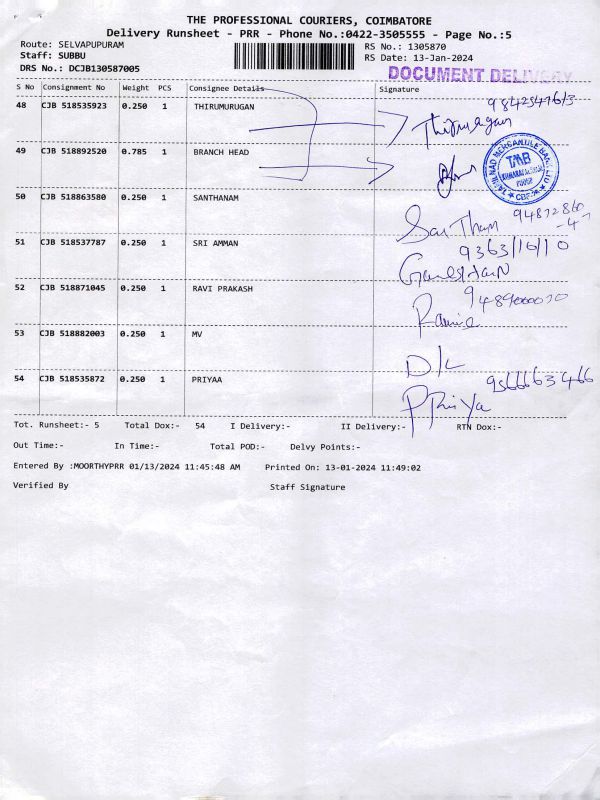 THE PROFESSIONAL COURIERS, COIMBATORE
Delivery Runsheet - PRR - Phone No.:0422-3505555 - Page No.:5
Route: SELVAPUPURAM
RS No.: 1305870
Staff: SUBBU
RS Date: 13-Jan-2024
DRS No.: DCJB130587005
DOCUMENT DELIVERY
S No Consignment No Weight PCS Consignee Details Signature
48 CJB 518535923 0.250 1 THIRUMURUGAN
Thirumurugan
49 CJB 518892520 0.785 1 BRANCH HEAD
TAMILNAD MERCANTILE BANK LTD
TMB
CBE
50 CJB 518863580 0.250 1 SANTHANAM
51 CJB 518537787 0.250 1 SRI AMMAN
9363/16/10
52 CJB 518871045 0.250 1 RAVI PRAKASH
53 CJB 518882003 0.250 1 MV
D/L
54 CJB 518535872 0.250 1 PRIYAA
9566663466
PRiYa
Tot. Runsheet:- 5 Total Dox:- 54 I Delivery:- II Delivery:- RTN Dox:-
Out Time:- In Time:- Total POD:- Delvy Points:-
Entered By :MOORTHYPRR 01/13/2024 11:45:48 AM Printed On: 13-01-2024 11:49:02
Verified By Staff Signature